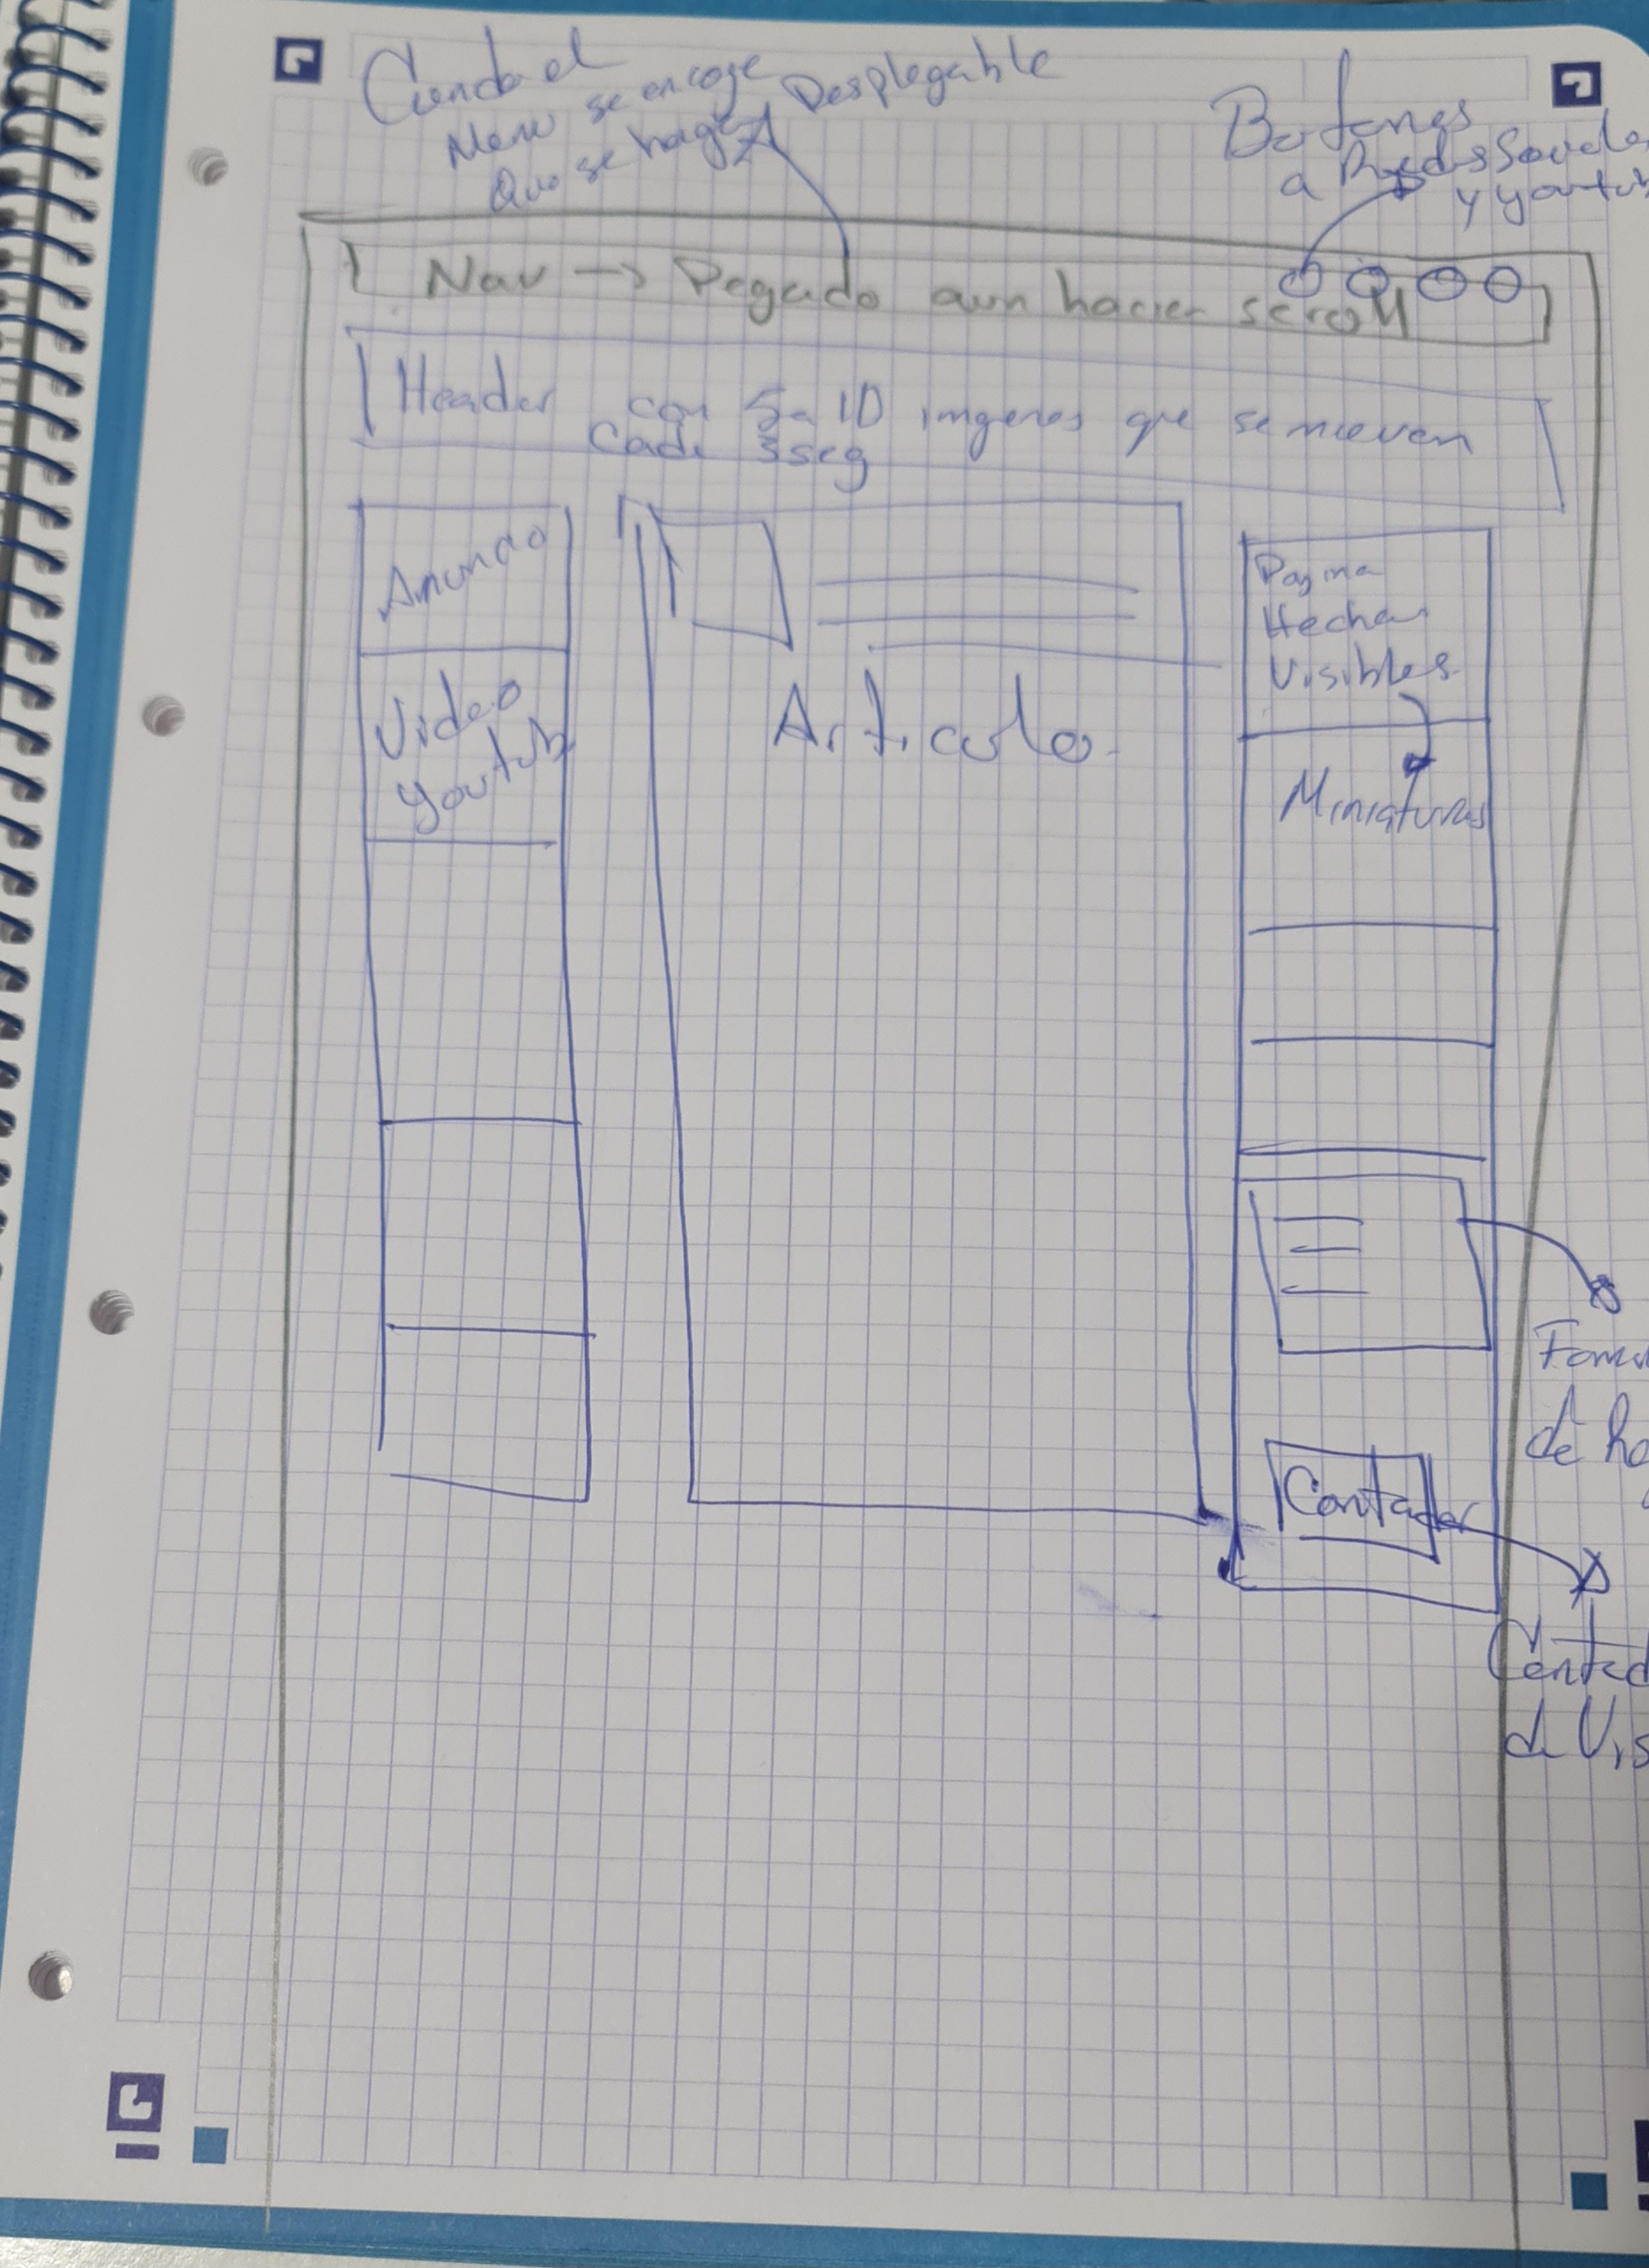 Cuando el
Menu se encoge
Que se haga Desplegable
Botones
a Redes Sociales
y youtub
Nav -> Pegado aun hacien scroll
Header con 5a 10 imgenes que se mueven
Cada 3seg
Anuncio
Video
Youtub
Articulo
Pagina
Hechas
Visibles
Miniaturas
de
Contador
de Vis